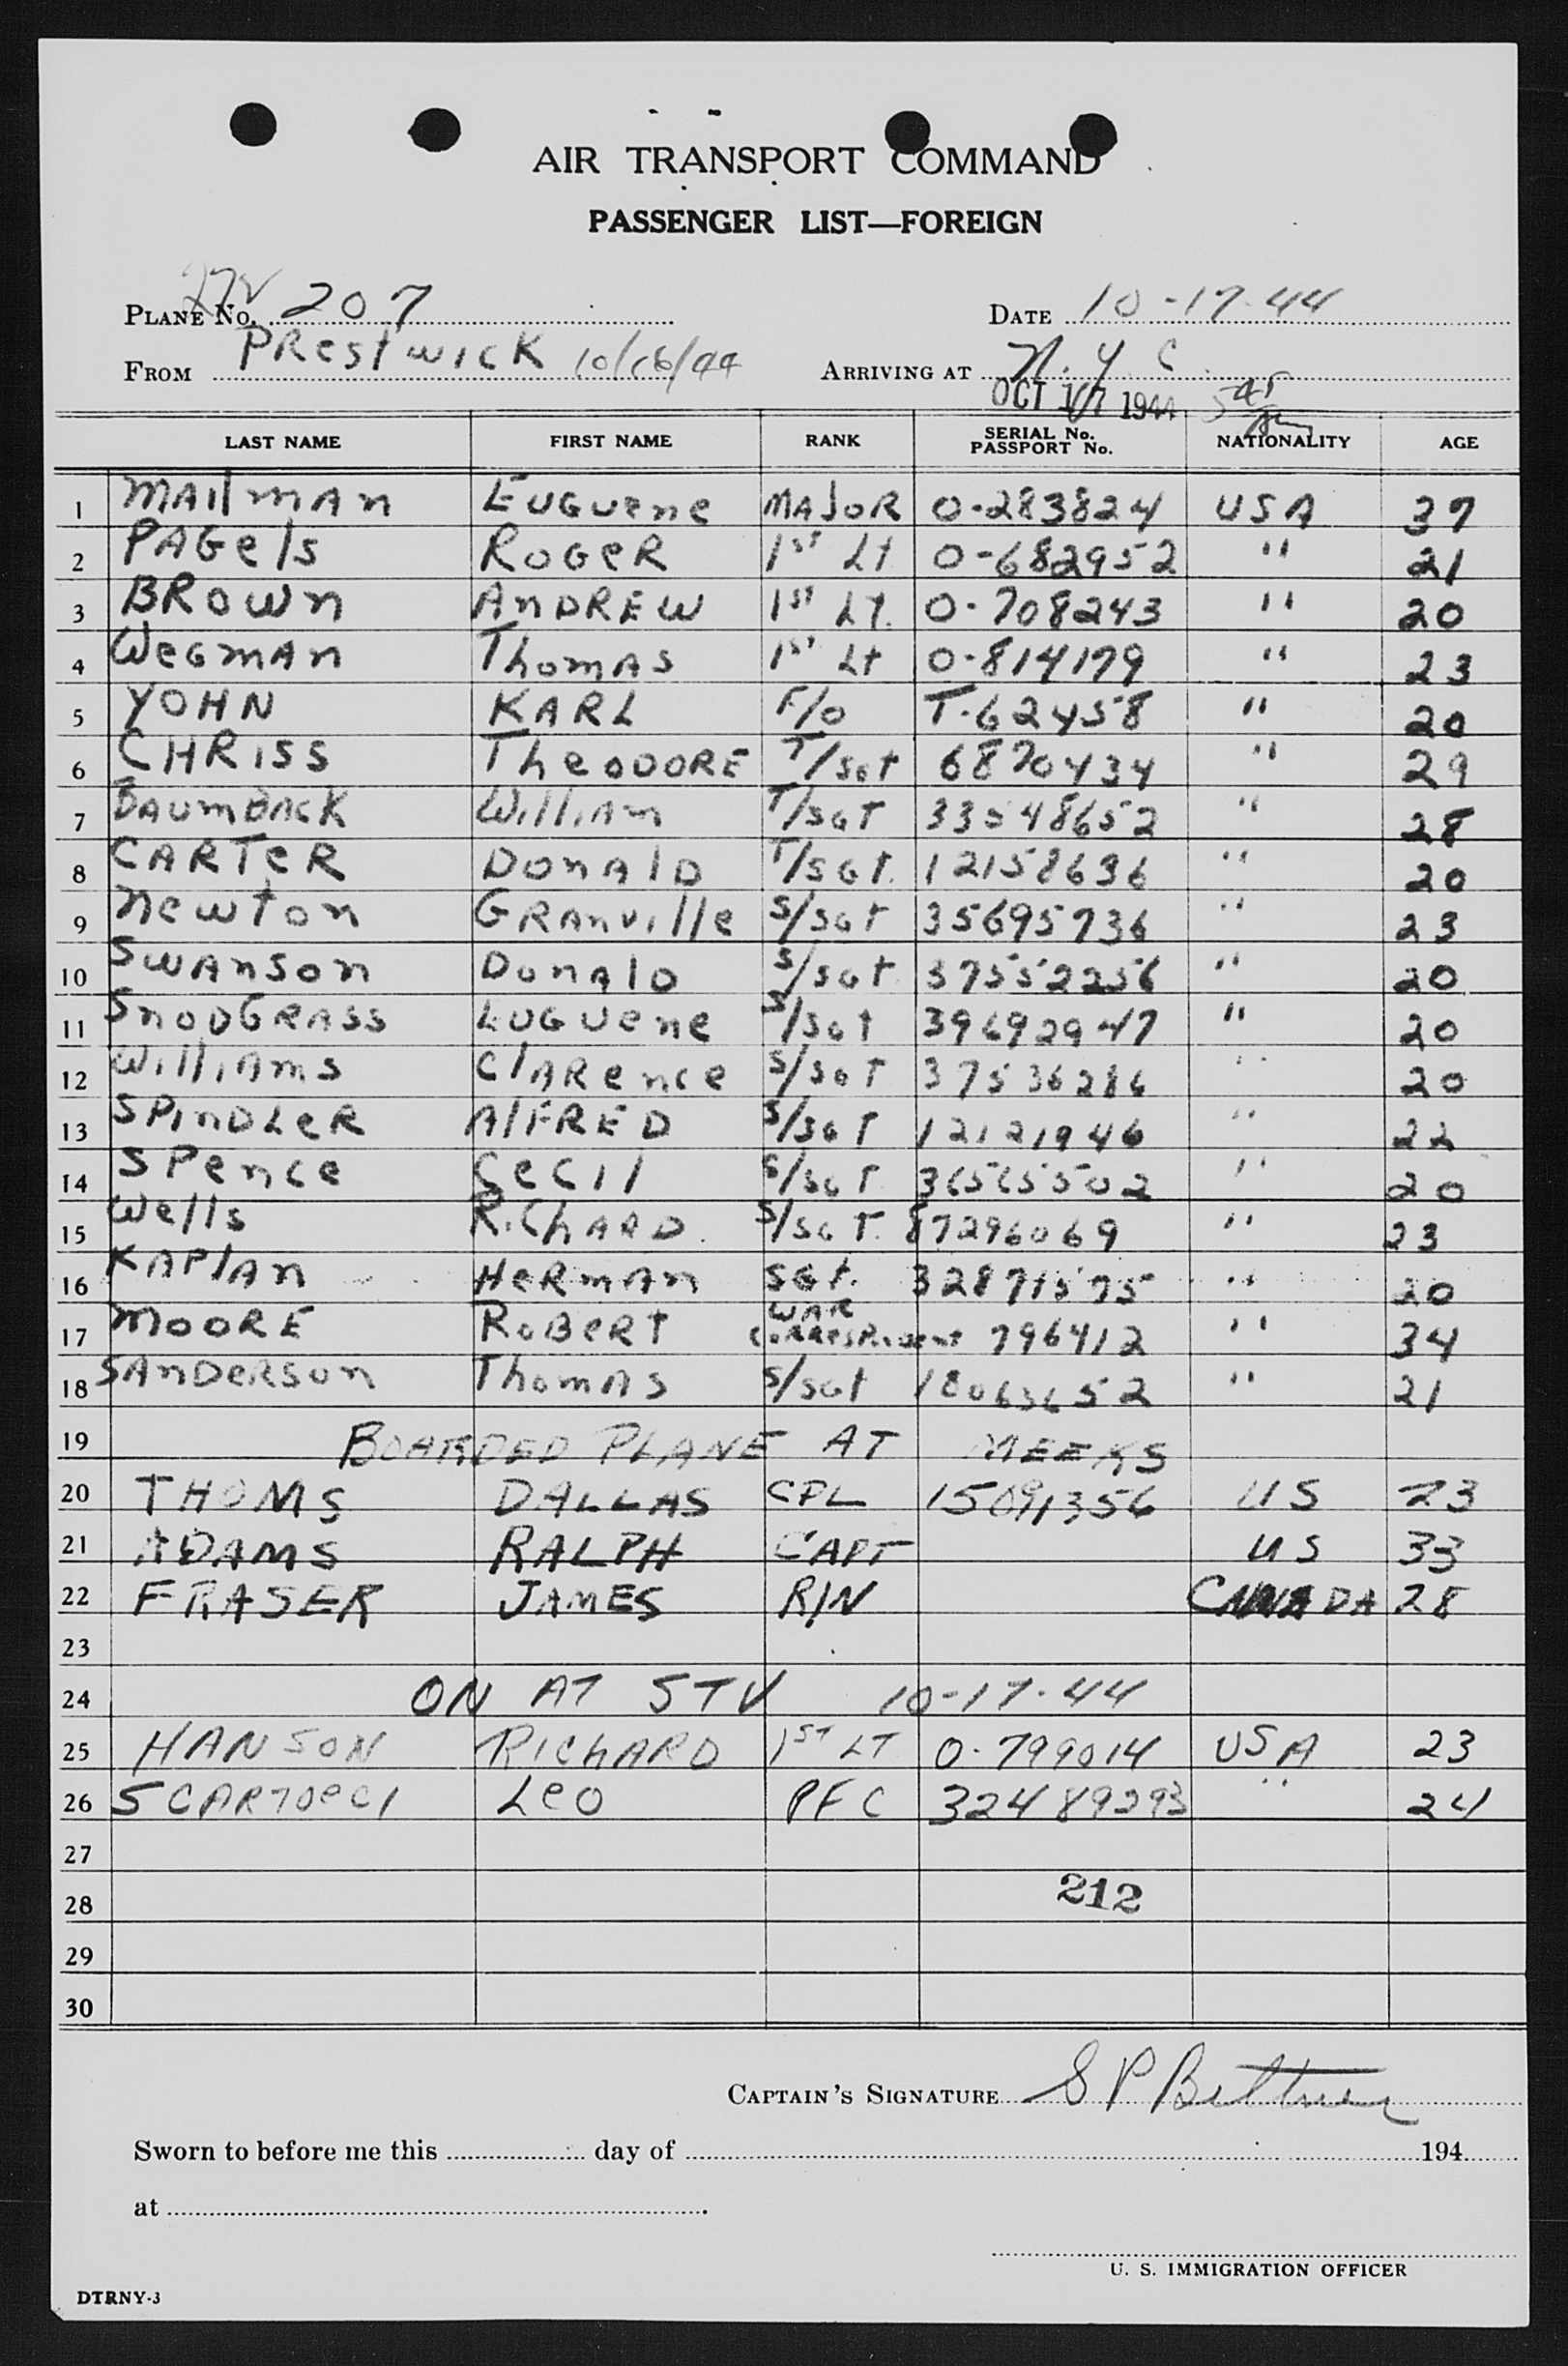 AIR TRANSPORT COMMAND
PASSENGER LIST—FOREIGN
PLANE No. 207 DATE 10-17-44
FROM PRestwick 10/16/44 ARRIVING AT N.Y.C.
OCT 17 1944
LAST NAME FIRST NAME RANK SERIAL No. PASSPORT No. NATIONALITY AGE
1 MAilmAn EuGuene MAJOR 0-283824 USA 37
2 PAGels RoGeR 1st Lt 0-682952 " 21
3 BROWn AnDREW 1st Lt. 0-708243 " 20
4 WeGmAn ThomAs 1st Lt 0-814179 " 23
5 YOHN KARL F/O T-62458 " 20
6 CHRiss TheoDORE T/SGt 6870434 " 29
7 BAumBAcK WilliAm T/SGT 33548652 " 28
8 CARTeR DonAlD T/SGt. 12158636 " 20
9 newton GRAnville S/SGt 35695736 " 23
10 SwAnson DonAlD S/SGt 37552256 " 20
11 SnoDGRAss EuGuene S/SGt 39692947 " 20
12 WilliAms ClARence S/SGT 37536286 " 20
13 SPinDLeR AlFRED S/SGT 12121946 " 22
14 SPence CeCil S/SGT 36565502 " 20
15 Wells RiChARD S/SGT. 37296069 " 23
16 KAPlAn HeRmAn SGt. 32871575 " 20
17 MOORE RoBeRt WAR CoRResPonDent 796412 " 34
18 SAnDeRson ThomAs S/SGt 18063652 " 21
19 BOARDED PLANE AT MEEKS
20 THOMS DALLAS CPL 15091356 US 23
21 ADAMS RALPH CAPT US 33
22 FRASER JAMES R/N CANADA 28
23
24 ON AT STV 10-17-44
25 HANSON RIChARD 1ST LT 0-799014 USA 23
26 LeO PFC 32489293 " 24
27
28 212
29
30
CAPTAIN'S SIGNATURE S P Bittner
Sworn to before me this day of 194
at
U. S. IMMIGRATION OFFICER
DTRNY-3